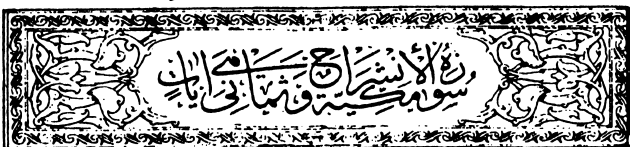 سورة الانشراح مكية وثماني آيات